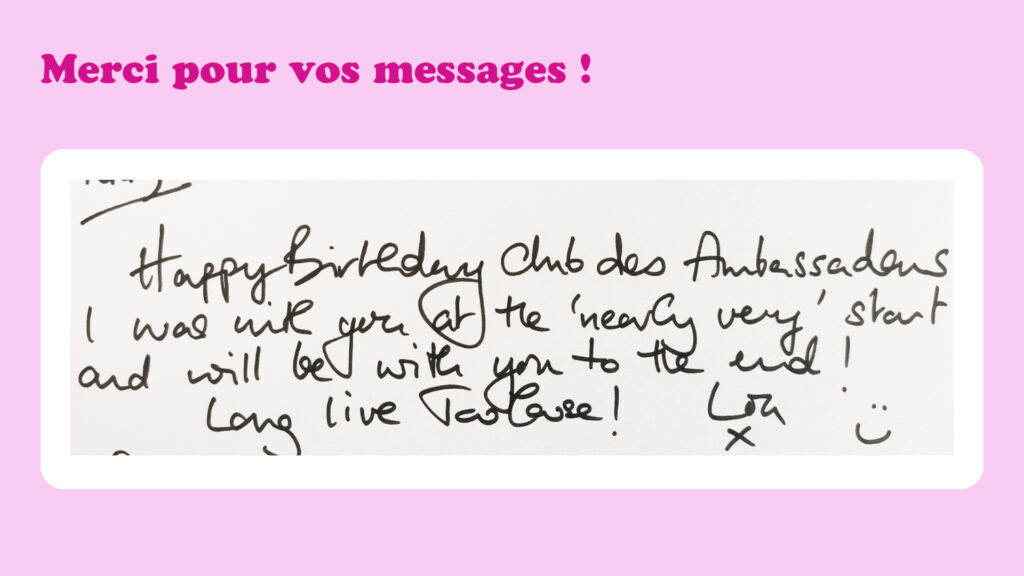 Merci pour vos messages !
Happy Birthday Club des Ambassadeurs
I was with you at the 'nearly very' start
and will be with you to the end !
Long live Toulouse ! Lou
x